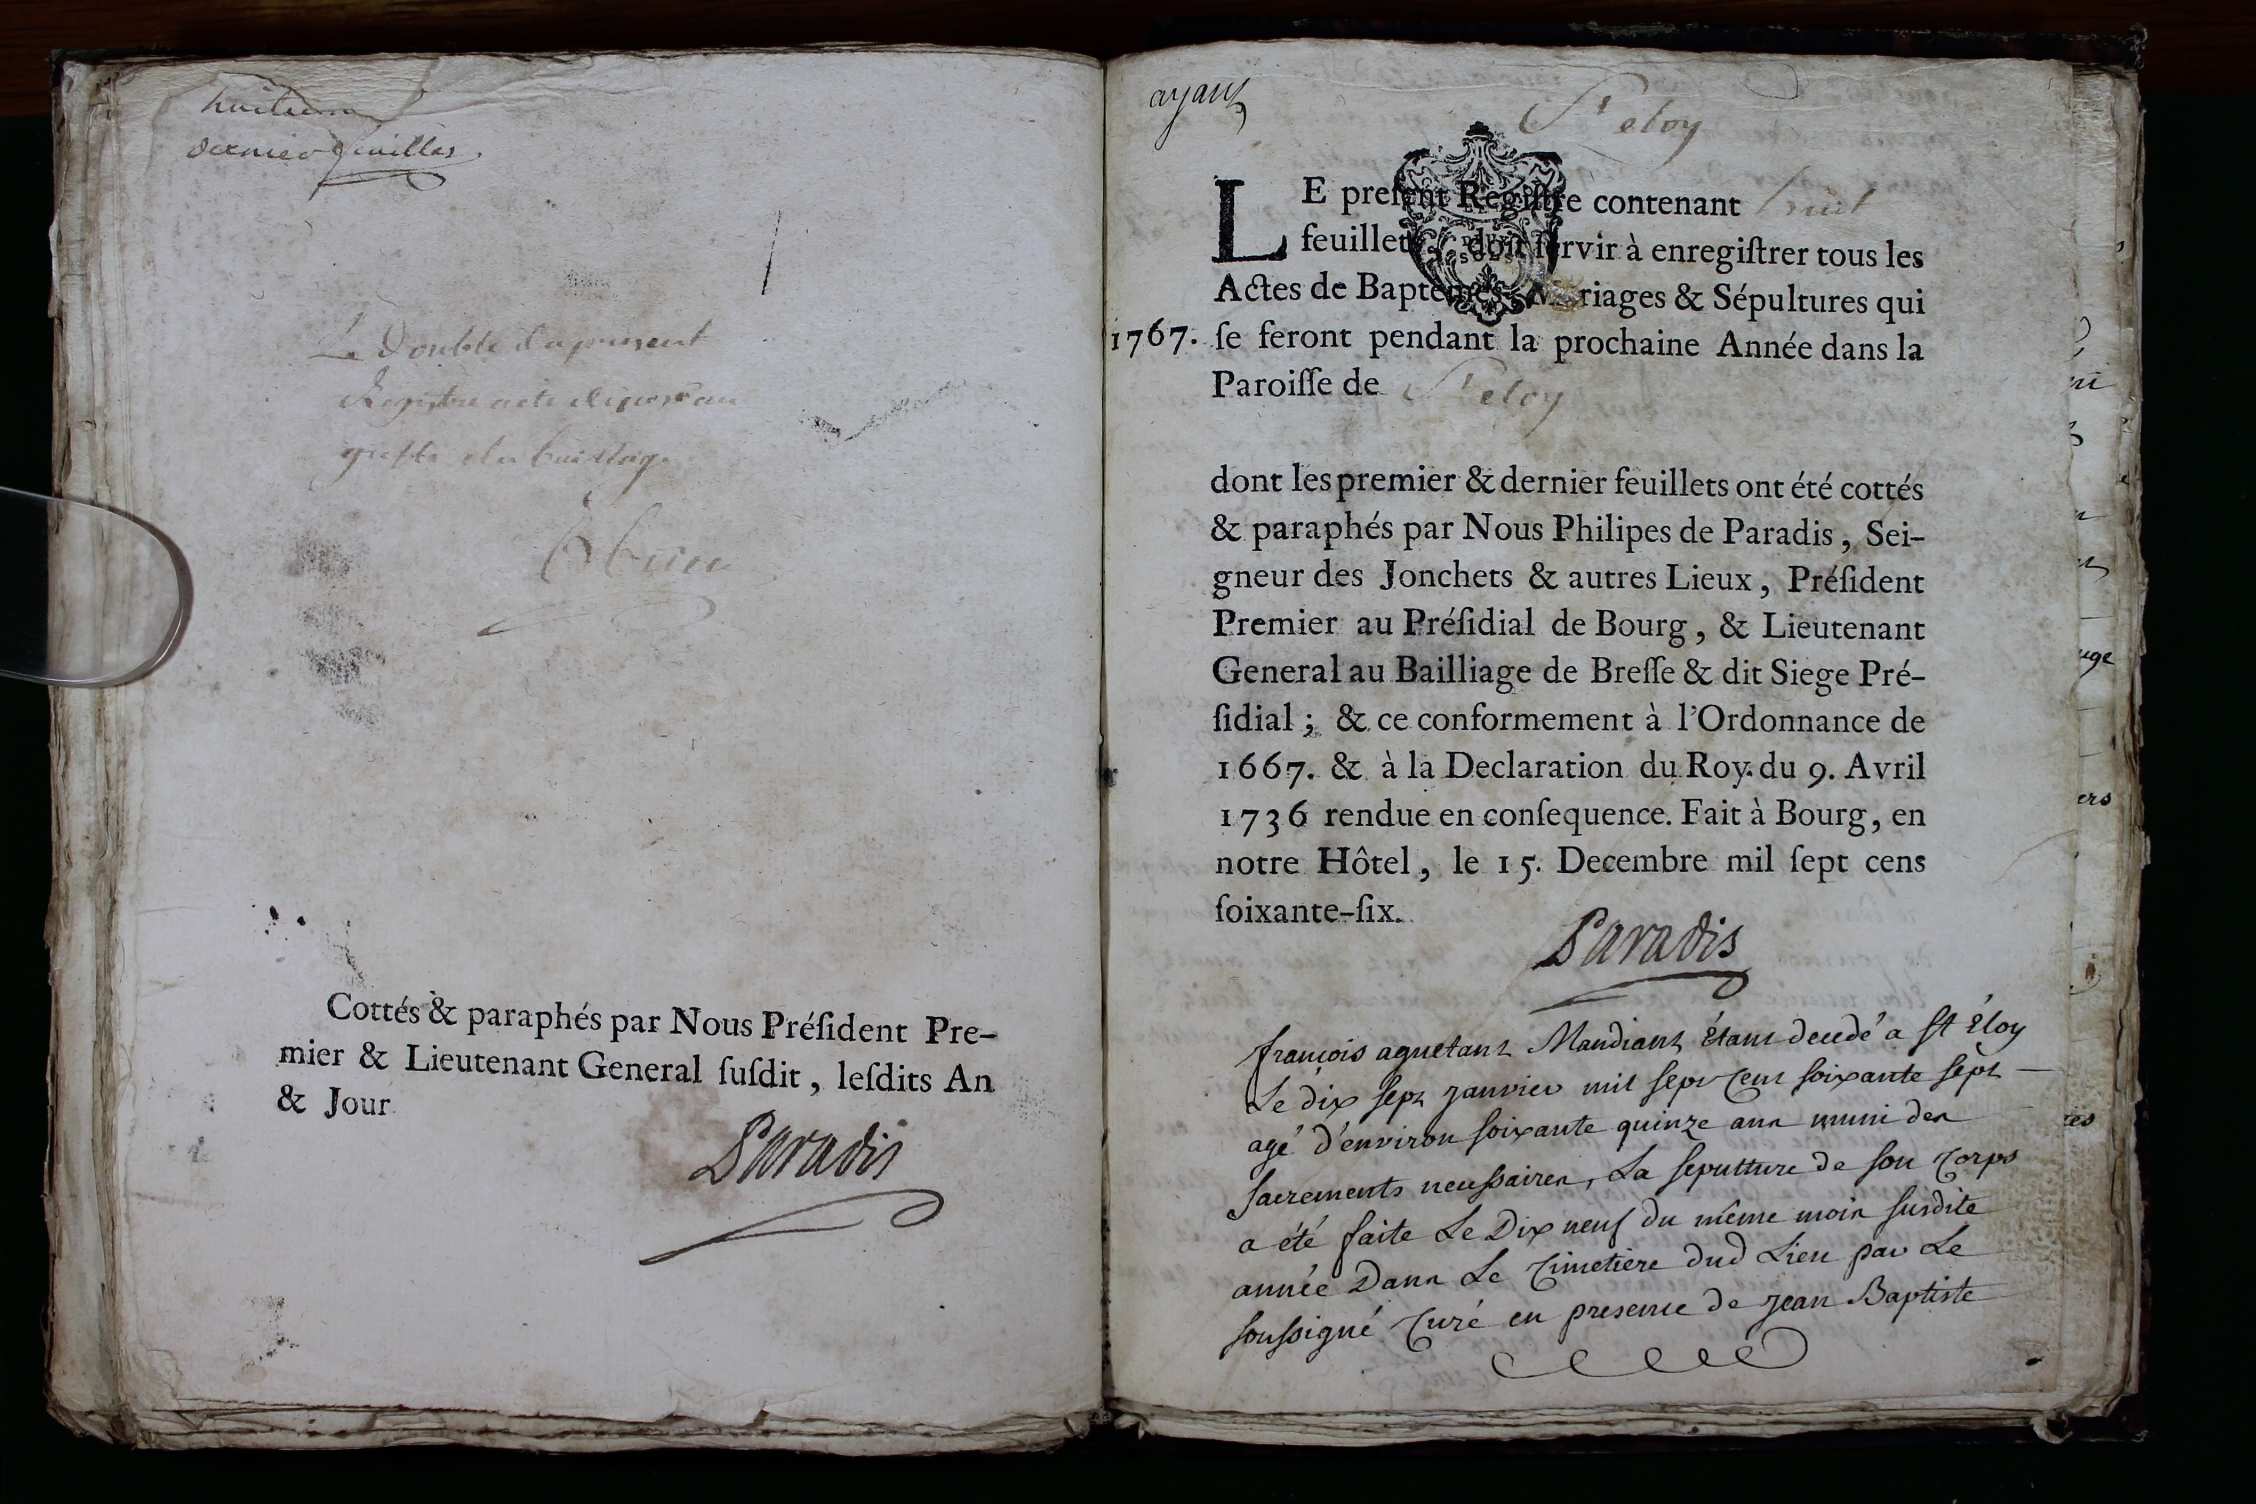 huitieme
dernier feuillet
Le Double du present
Registre a été deposé au
greffe du bailliage
Cottés & paraphés par Nous Préſident Pre-
mier & Lieutenant General ſuſdit, leſdits An
& Jour
Paradis
ayant
St eloy
LE preſent Regiſtre contenant huit
feuillets, doit ſervir à enregiſtrer tous les
Actes de Baptêmes, Mariages & Sépultures qui
1767. ſe feront pendant la prochaine Année dans la
Paroiſſe de St eloy
dont les premier & dernier feuillets ont été cottés
& paraphés par Nous Philipes de Paradis, Sei-
gneur des Jonchets & autres Lieux, Préſident
Premier au Préſidial de Bourg, & Lieutenant
General au Bailliage de Breſſe & dit Siege Pré-
ſidial; & ce conformement à l'Ordonnance de
1667. & à la Declaration du Roy. du 9. Avril
1736 rendue en conſequence. Fait à Bourg, en
notre Hôtel, le 15. Decembre mil ſept cens
ſoixante-ſix.
Paradis
françois aguetant Mandiant étant decedé a St Eloy
Le dix sept janvier mil sept cent soixante sept
agé d'environ soixante quinze ans muni des
sacrements necessaires, La sepulture de son corps
a été faite Le Dix neuf du même mois susdite
année Dans Le cimetiere dud Lieu par Le
soussigné curé en presence de jean Baptiste